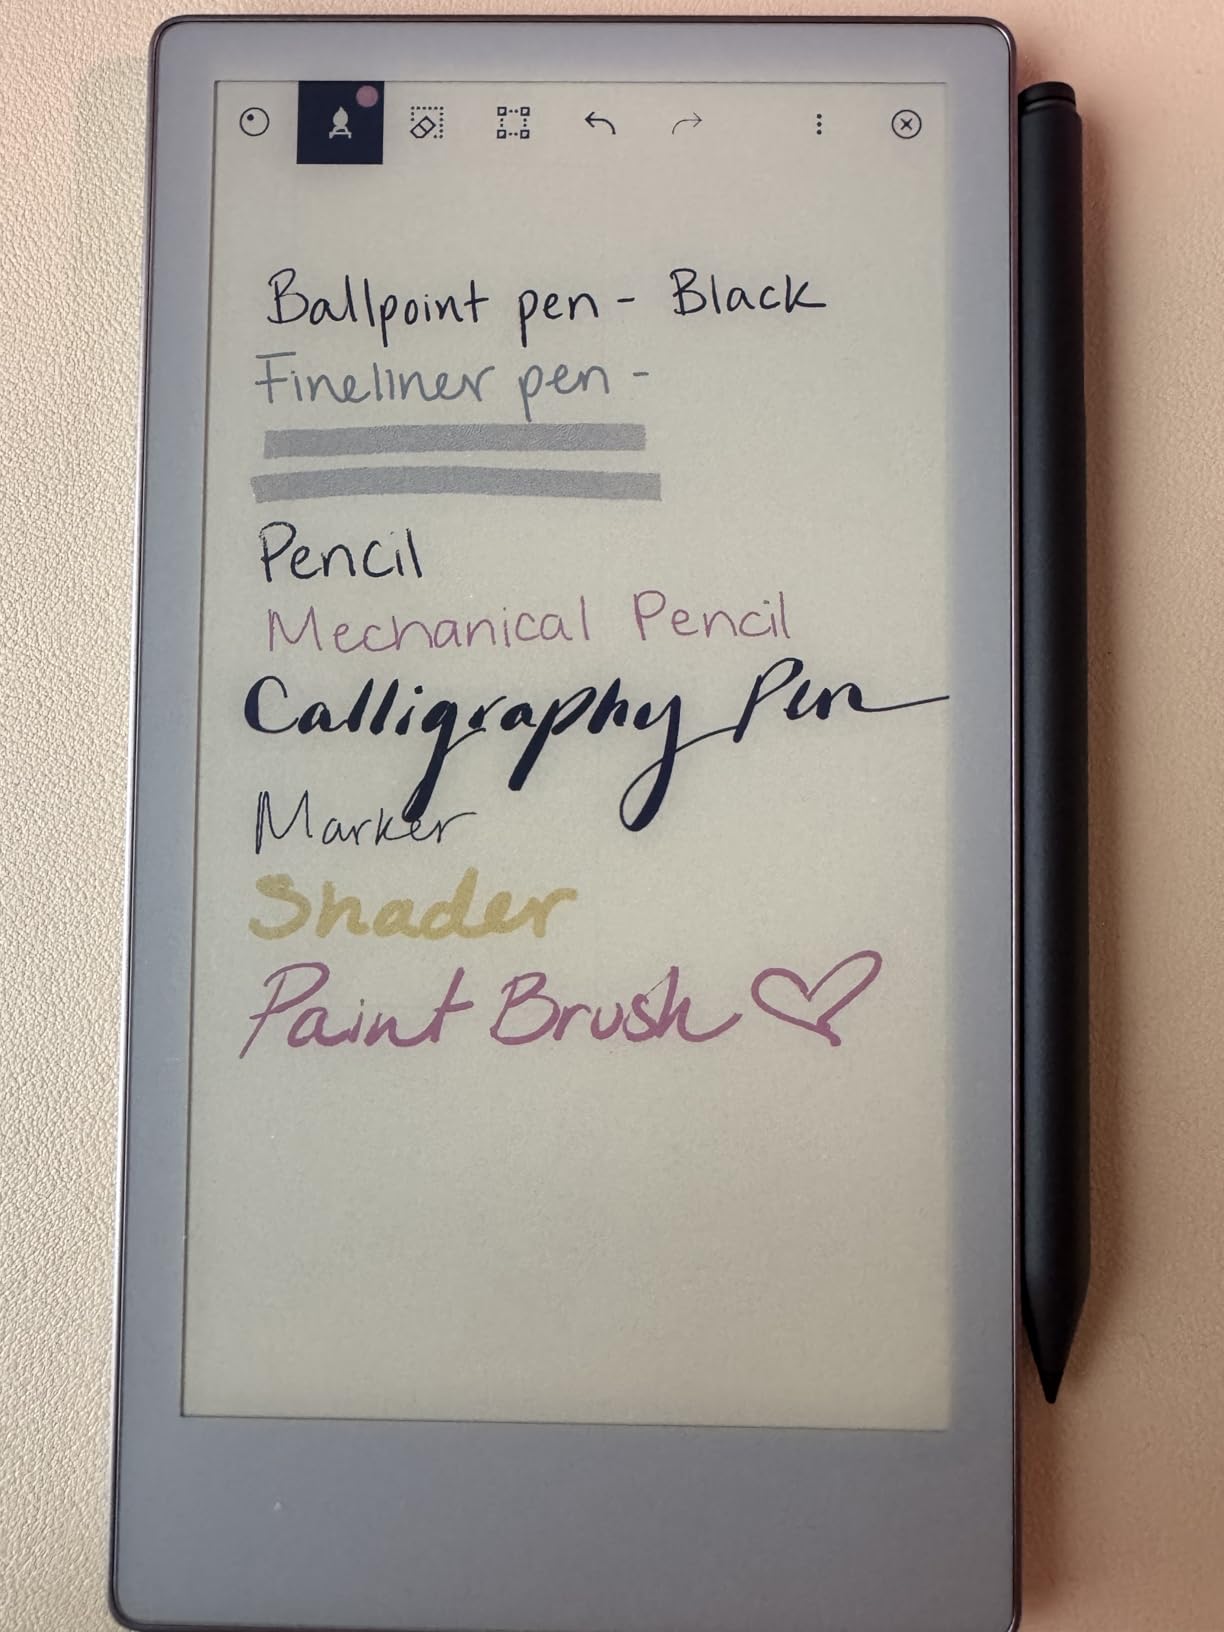 Ballpoint pen - Black
Fineliner pen -
Pencil
Mechanical Pencil
Calligraphy Pen
Marker
Shader
Paint Brush